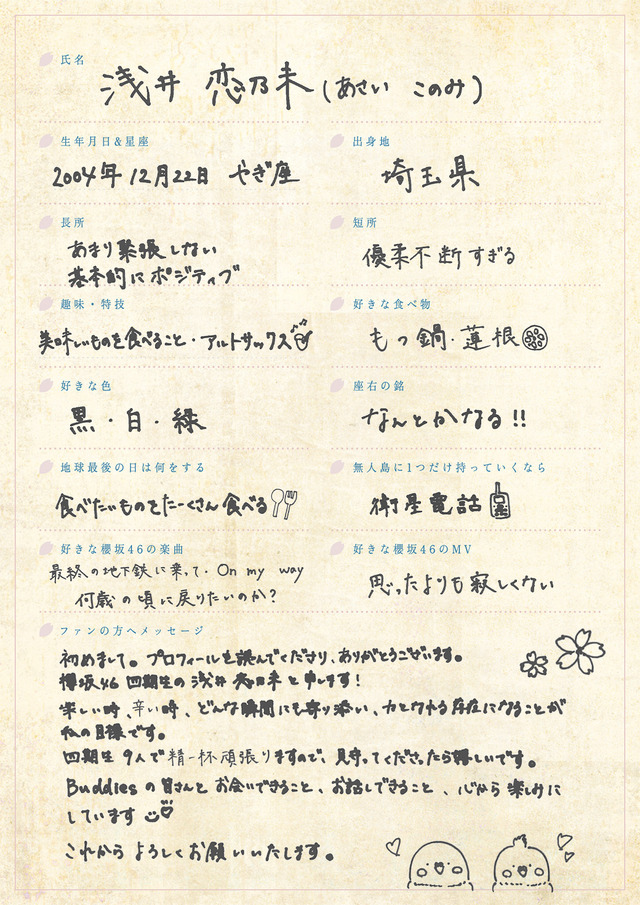 氏名
浅井 恋乃未(あさい このみ)
生年月日&星座
2004年 12月22日 やぎ座
出身地
埼玉県
長所
あまり緊張しない
基本的にポジティブ
短所
優柔不断すぎる
趣味・特技
美味しいものを食べること・アルトサックス
好きな食べ物
もつ鍋・蓮根
好きな色
黒・白・緑
座右の銘
なんとかなる!!
地球最後の日は何をする
食べたいものをたーくさん食べる
無人島に1つだけ持っていくなら
衛星電話
好きな櫻坂46の楽曲
最終の地下鉄に乗って・On my way
何歳の頃に戻りたいのか?
好きな櫻坂46のMV
思ったよりも寂しくない
ファンの方へメッセージ
初めまして。プロフィールを読んでくださり、ありがとうございます。
櫻坂46 四期生の浅井恋乃未と申します!
楽しい時、辛い時、どんな瞬間にも寄り添い、力となれる存在になることが
私の目標です。
四期生9人で精一杯頑張りますので、見守ってくださったら嬉しいです。
Buddiesの皆さんとお会いできること、お話しできること、心から楽しみに
しています
これからよろしくお願いいたします。